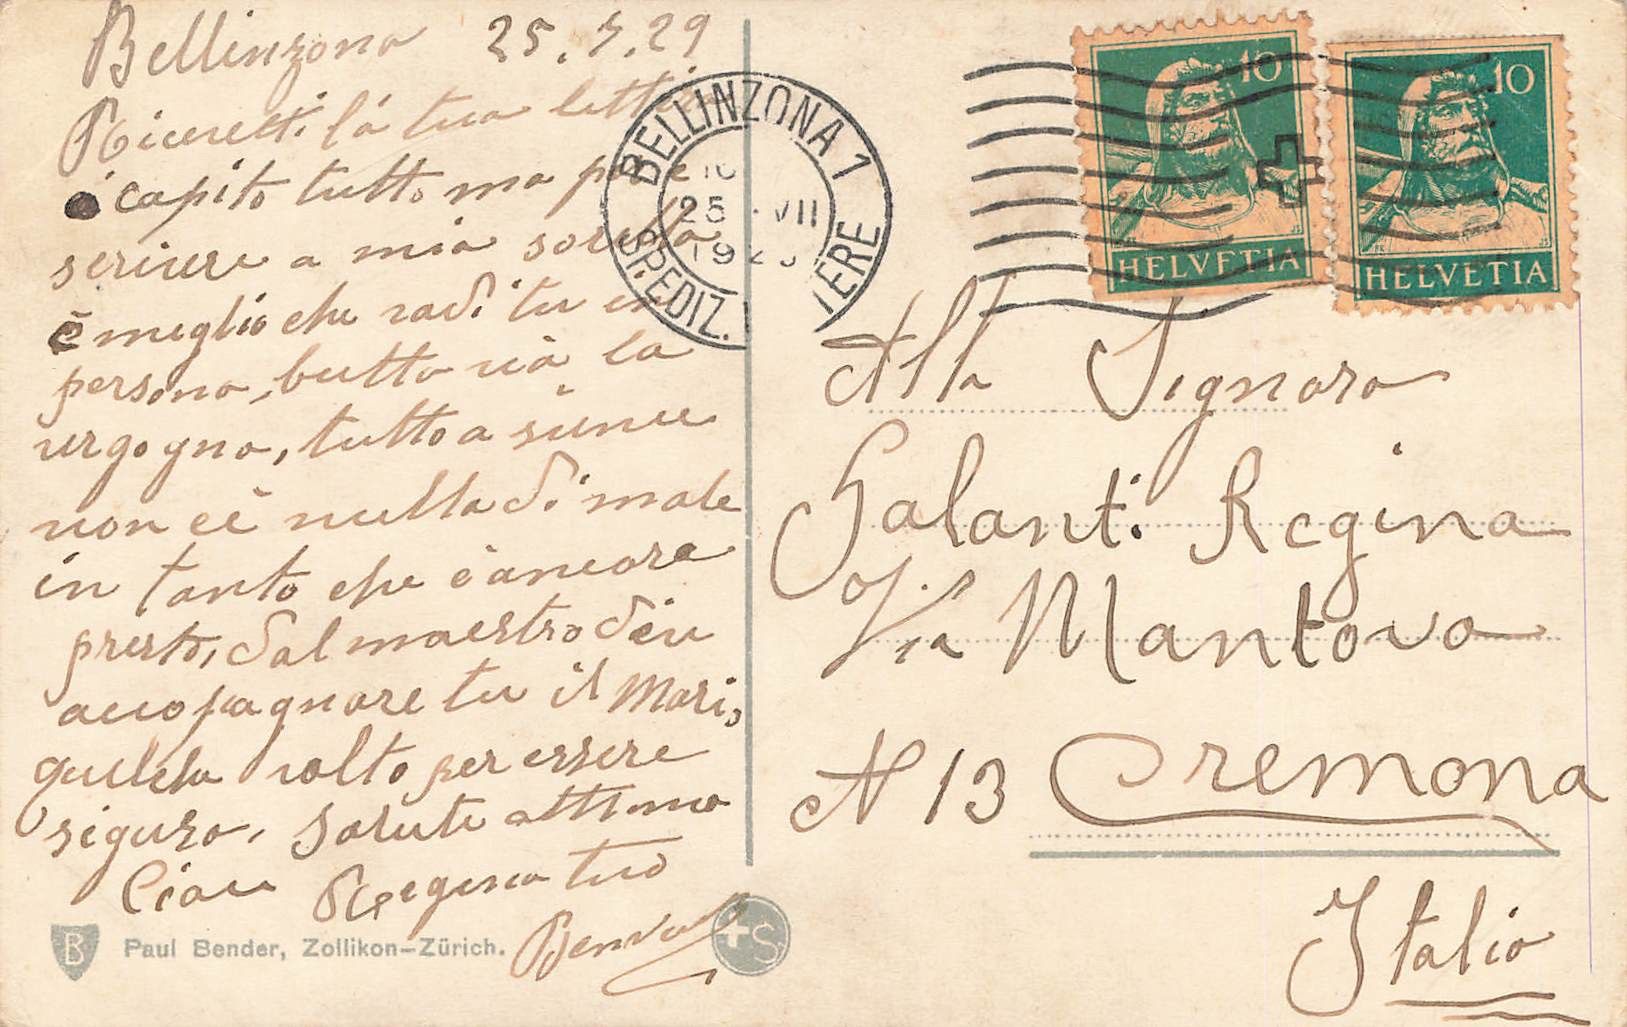 Bellinzona 25.7.29
Ricevetti la tua lettera
o capito tutto ma per
scrivere a mia sorella
è meglio che vadi tu in
persona, butta via la
vergogna, tutto a sinue
non cè nulla di male
in tanto che è ancora
presto, dal maestro devi
accopagnare tu il Mari,
quelcha volto per essere
siguro, Salute attimo
Ciau Regina tuo
Benve
Paul Bender, Zollikon-Zürich.
B
+S
BELLINZONA 1
10
25. VII
192
SPEDIZ. LETTERE
10
HELVETIA
10
HELVETIA
Alla Signora
Galanti Regina
Via Mantova
N 13 Cremona
Italia